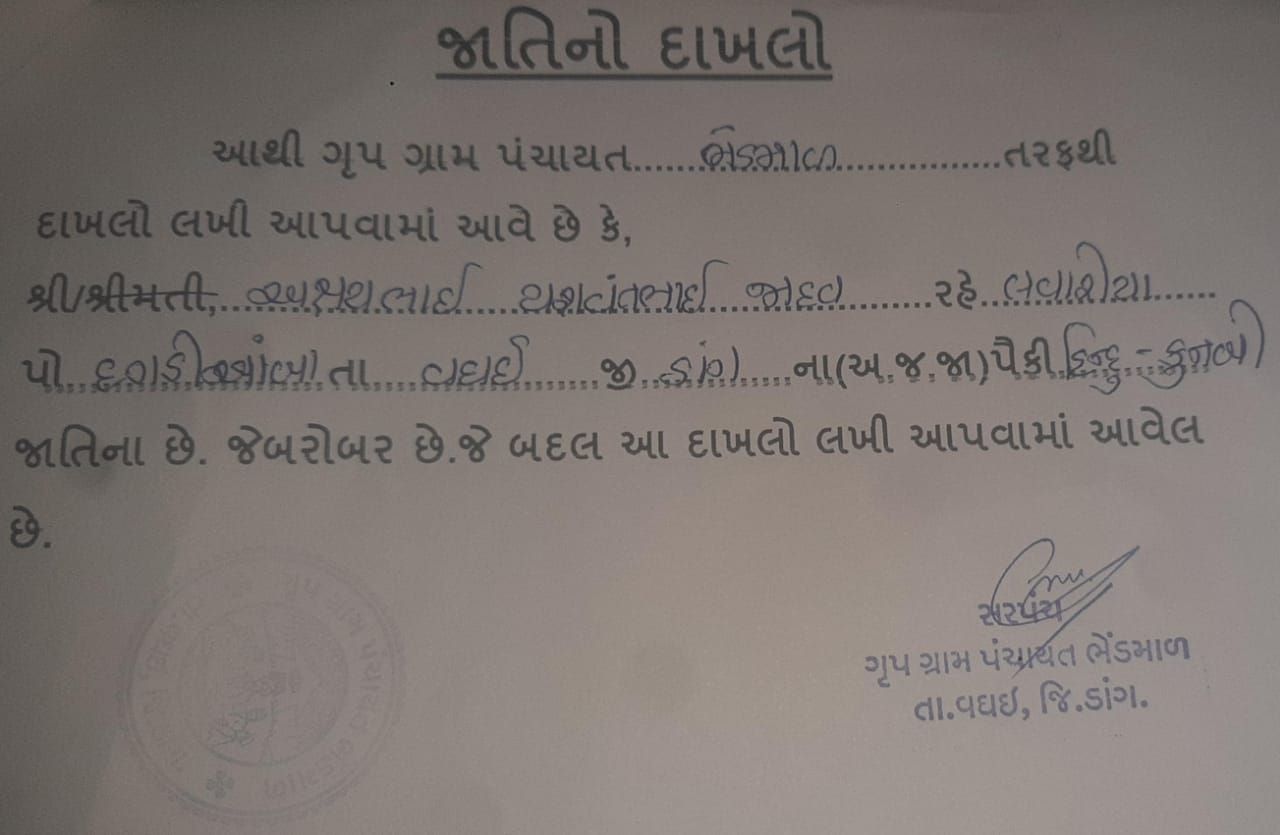 જાતિનો દાખલો
આથી ગૃપ ગ્રામ પંચાયત......ભેંડમાળ...............તરફથી
દાખલો લખી આપવામાં આવે છે કે,
શ્રી/શ્રીમતી,...અક્ષયભાઈ....યશવંતભાઈ...જાદવ.........રહે..લવાર્યા......
પો..દગડીઆંબા તા....વઘઈ.......જી..ડાંગ.....ના(અ.જ.જા)પૈકી હિન્દુ - કુનબી
જાતિના છે. જેબરોબર છે.જે બદલ આ દાખલો લખી આપવામાં આવેલ
છે.
સરપંચ
ગૃપ ગ્રામ પંચાયત ભેંડમાળ
તા.વઘઇ, જિ.ડાંગ.
ગૃપ ગ્રામ પંચાયત ભેંડમાળ